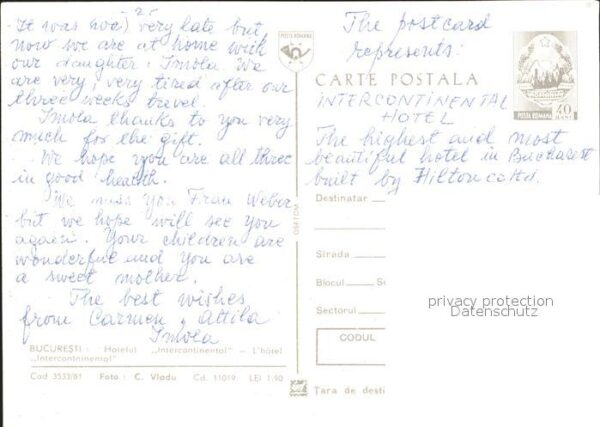 -2-
It was very late but,
now we are at home with
our daughter: Imola. We
are very, very tired after our
three weeks travel.
Imola thanks to you very
much for the gift.
We hope you are all three
in good health.
We miss you Frau Weber
but we hope will see you
again. Your children are
wonderful and you are
a sweet mother.
The best wishes
from Carmen, Attila
Imola
BUCUREȘTI: Hotelul „Intercontinental" — L'hôtel
„Intercontninental"
Cod 3533/81 Foto: C. Vladu Cd. 11019 LEI 1.90
POSTA ROMANA
The postcard
represents:
CARTE POSTALA
INTERCONTINENTAL
HOTEL
POSTA ROMANA 40 BANI
The highest and most
beautiful hotel in Bucharest
built by Hilton
Destinatar
Strada
Blocul
Sectorul
privacy protection
Datenschutz
CODUL
Țara de desti